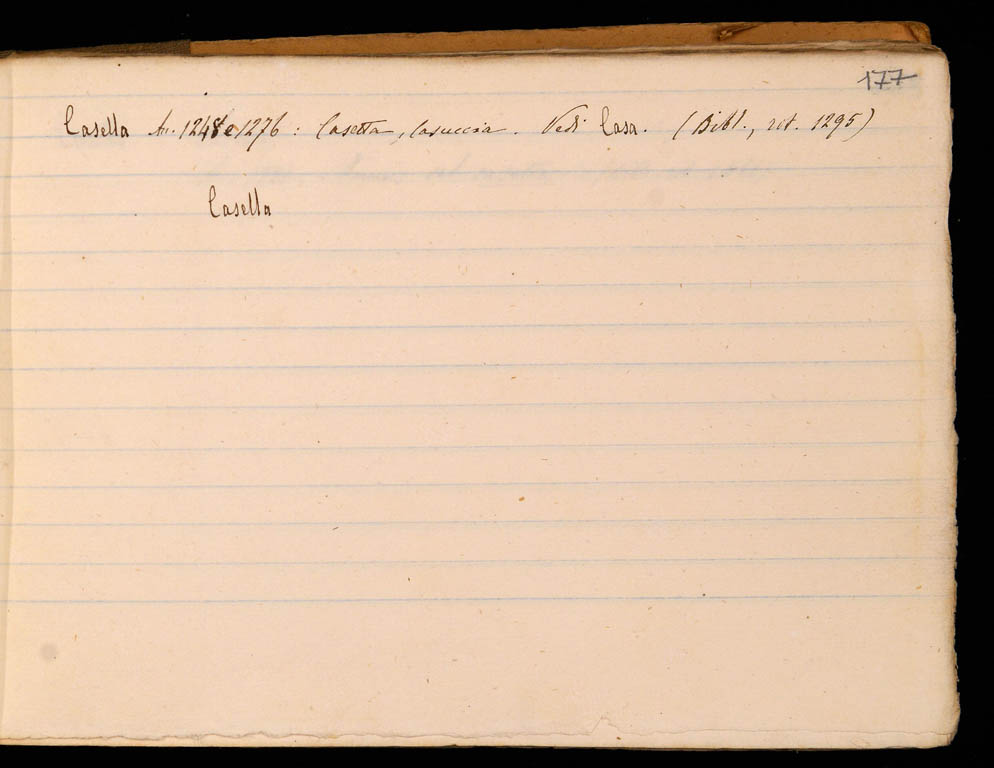 177
Casella An. 1248 e 1276 : Casetta, Casuccia. Vedi Casa. (Bibl., rot. 1295)
Casella